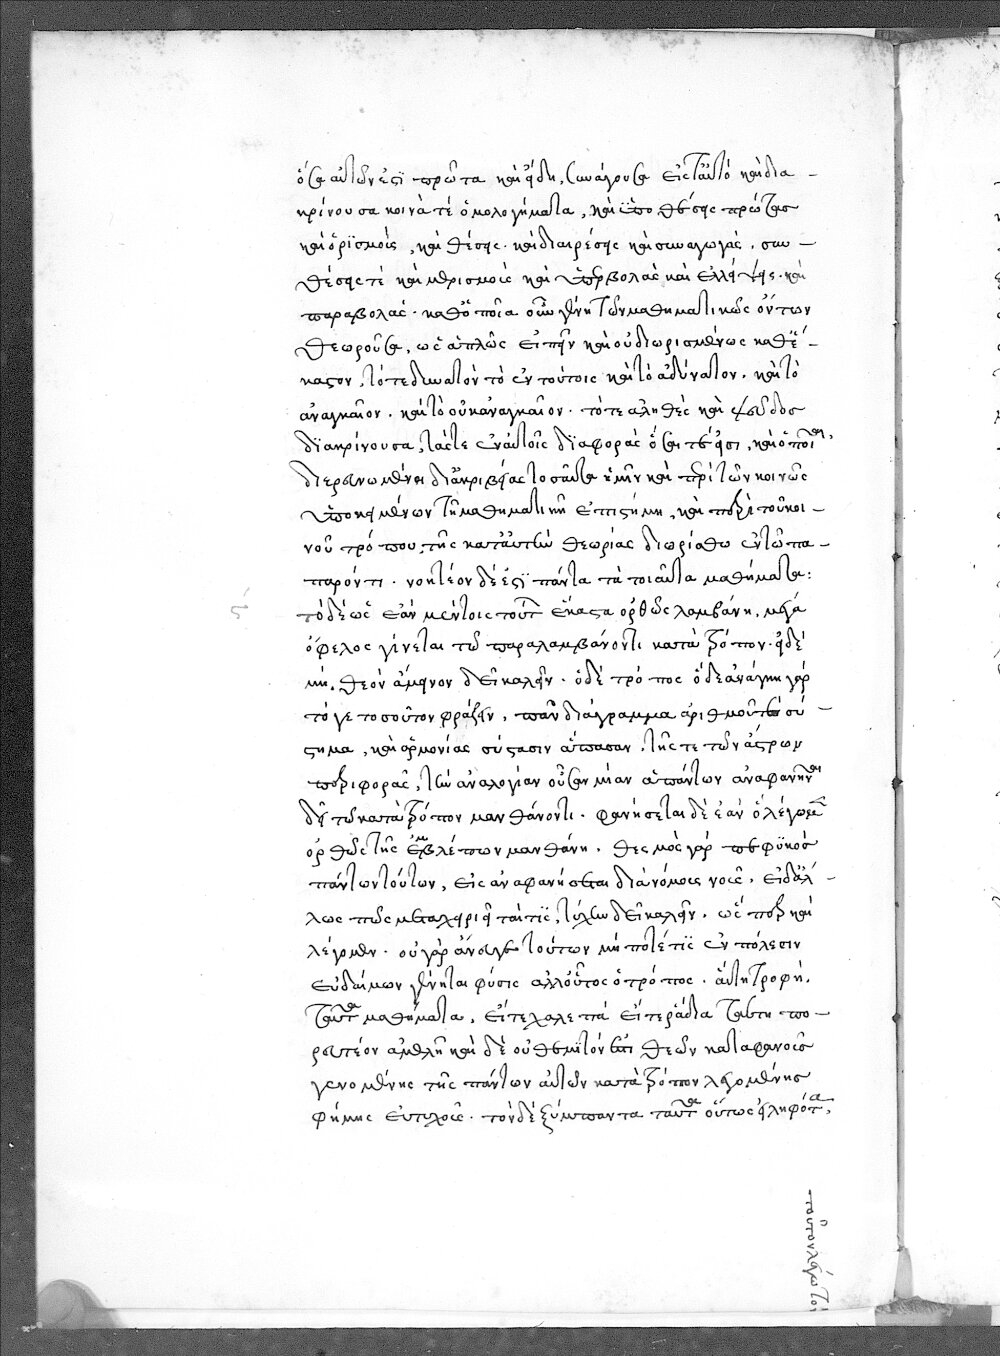 ὅσα αὐτῶν ἐστὶ πρῶτα καὶ εἴδη, συνάγουσα εἰς ταὐτὸ καὶ δια –
κρίνουσα κοινά τε ὁμολογήματα, καὶ ὑποθέσεις πρώτας
καὶ ὁρισμοὺς, καὶ θέσεις· καὶ διαιρέσεις καὶ συναγωγάς, συν –
θέσεις τὲ καὶ μερισμοὺς καὶ ὑπερβολὰς καὶ ἐλλείψεις· καὶ
παραβολάς· καθόποῖα οὖν γένη τῶν μαθηματικῶς ὄντων
θεωροῦσα, ὡς ἁπλῶς εἰπεῖν καὶ οὐ διωρισμένως καθ' ἕ –
καστον, τό τε δυνατὸν τὸ ἐν τούτοις καὶ τὸ ἀδύνατον, καὶ τὸ
ἀναγκαῖον, καὶ τὸ οὐκ ἀναγκαῖον· τό τε ἀληθὲς καὶ ψεῦδος
διακρίνουσα, τάς τε ἐν αὐτοῖς διαφορὰς ὅσαι τέ εἰσι, καὶ ὁποῖαι,
διερευνωμένη διακριβείας τοσαῦτα ἡμῖν καὶ περὶ τῶν κοινῶς
ὑποκειμένων τῇ μαθηματικῇ ἐπιστήμῃ, καὶ περὶ τοῦ κοι –
νοῦ τρόπου, τῆς κατ' αὐτὴν θεωρίας διωρίσθω ἐν τῷ πα –
παρόντι· νοητέον δέ ἐστι πάντα τὰ τοιαῦτα μαθήματα:
ϛ τόδε ὡς ἐὰν μέν τοις τούτων ἕκαστα ὀρθῶς λαμβάνη, μέγα
ὄφελος γίνεται τῷ παραλαμβάνοντι κατὰ τρόπον· εἰ δὲ
μὴ, θεὸν ἄμεινον δεῖ καλεῖν· ὁ δὲ τρόπος ὅδε ἀνάγκη γὰρ
τό γε τοσοῦτον φράζειν, πᾶν διάγραμμα ἀριθμοῦ τὲ σύ –
στημα, καὶ ἁρμονίας σύστασιν ἅπασαν, τῆς τε τῶν ἄστρων
περιφορᾶς, τὴν ἀναλογίαν οὖσαν μίαν ἁπάντων ἀναφανῆναι
δεῖ τῷ κατὰ τρόπον μανθάνοντι· φανήσεται δὲ ἐὰν ὃ λέγομεν
ὀρθῶς τῆς ἐμβλέπων μανθάνη· θεσμὸς γὰρ πεφυκὸς
πάντων τούτων, εἰς ἀναφανήσεται διανόμοις νοεῖς, εἰ δ' ἄλ –
λως πῶς μεταχειριεῖται τίς, τύχην δεῖ καλεῖν, ὡς περ καὶ
λέγομεν· οὐ γὰρ ἄνευγε τούτων μὴ ποτέ τις ἐν πόλεσιν
εὐδαίμων γένηται φύσις ἀλλ' οὗτος ὁ τρόπος· αὕτη τροφὴ,
ταῦτα μαθήματα, εἴτε χαλεπὰ εἴτε ῥάδια ταύτη πο –
ρευτέον ἀμελεῖν καὶ δὲ οὐ θεμιτόν ἐστι θεῶν καταφανοῦς
γενομένης τῆς πάντων αὐτῶν κατὰ τρόπον λεγομένης
φήμης εὐτυχοῦς· τὸν δὲ ξύμπαντα ταῦτα οὕτως εἰληφότα,
τοῦτον λέγω τὸν